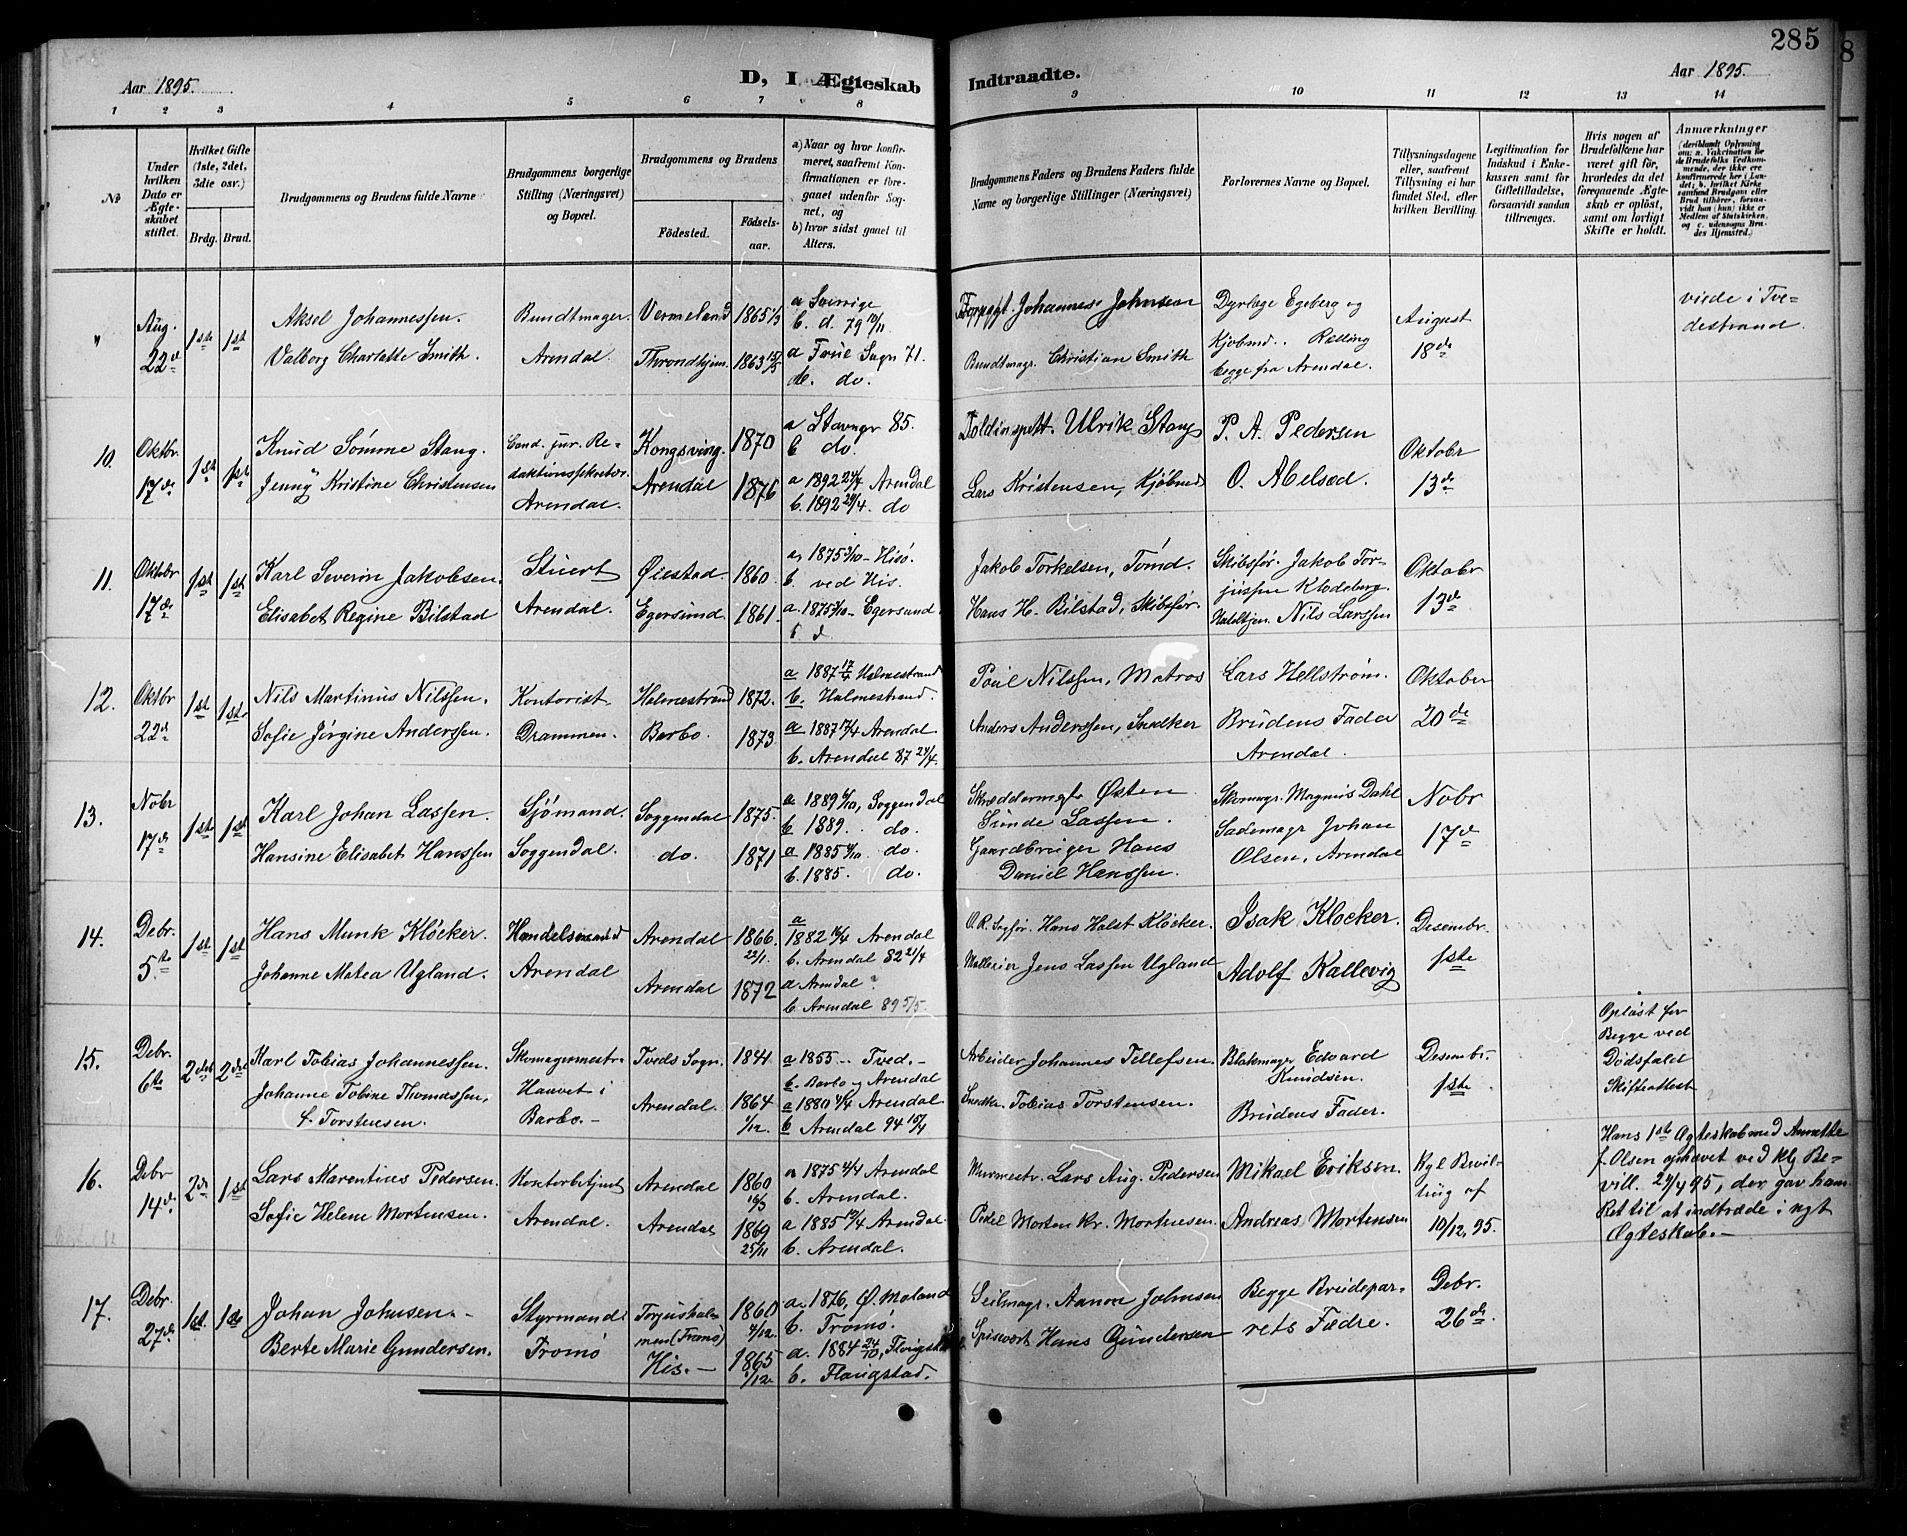 285
Aar 1895.
D, I Ægteskab Indtraadte.
Aar 1895.
1 2 3 4 5 6 7 8 9 10 11 12 13 14
No
Under hvilken Dato er Ægteskabet stiftet.
Hvilket Gifte (1ste, 2det, 3die osv.)
Brdg. Brud.
Brudgommens og Brudens fulde Navne
Brudgommens borgerlige Stilling (Næringsvei) og Bopæl.
Brudgommens og Brudens
Fødested.
Fødselsaar.
a) Naar og hvor konfirmeret, saafremt Konfirmationen er foregaaet udenfor Sognet, og
b) hvor sidst gaaet til Alters.
Brudgommens Faders og Brudens Faders fulde Navne og borgerlige Stillinger (Næringsvei)
Forlovernes Navne og Bopæl.
Tillysningsdagene eller, saafremt Tillysning ei har fundet Sted, efter hvilken Bevilling.
Legitimation for Indskud i Enkekassen samt for Giftetilladelse, forsaavidt saadan tiltrænges.
Hvis nogen af Brudefolkene har været gift før, hvorledes da det foregaaende Ægteskab er opløst, samt om lovligt Skifte er holdt.
Anmærkninger (deriblandt Oplysning om: a. Vakcination for de Brudefolks Vedkommende, der ikke ere konfirmerede her i Landet; b. hvilket Kirkesamfund Brudgom eller Brud tilhører, forsaavidt han (hun) ikke er Medlem af Statskirken, og c. udensogns Brudes Hjemsted.)
" Aug. 22d 1ste 1st
Aksel Johannessen.
Valborg Charlotte Smith.
Bundtmager.
Arendal.
Vermeland
Throndhjem.
1865
1863
a Sverrige
b. d. 79
71.
b. do.
Johannes Johnsen
Bundtmagr. Christian Smith
Dyrlæge Egeberg og
Kjøbmd. Relling
begge fra Arendal.
August
18de
viede i Tvedestrand.
10. Oktbr 17de 1st 1st
Knud Sømme Stang.
Jenny Kristine Christensen
Cand. jur. Redaktionssekretær.
Arendal.
Kongsving.
Arendal
1870
1876
a Stavngr 85.
b do.
a 1892 24/4 Arendal
b. 1892 29/4. do
Toldinspekt. Ulrik Stang
Lars Kristensen, Kjøbmd
P. A. Pedersen
O. Abelsed.
Oktober
13de
11. Oktbr 17de 1st 1st
Karl Severin Jakobsen.
Elisabet Regine Bilstad
Stuert
Arendal.
Øiestad
Egersund.
1860.
1861.
a. 1875 3/10 - Hisø.
b. ved His.
a. 1875 3/10 - Egersund.
Jakob Torkelsen, Tømd.
Hans H. Bilstad, Skibsfør.
Skibsfør. Jakob Torjussen Klodeberg.
Nils Larssen
Oktober
13de
12. Oktbr 22de 1st 1st
Nils Martinus Nilssen.
Sofie Jørgine Anderssen.
Kontorist
Drammen.
Holmestrand
Barbo.
1872.
1873.
a 1887 Holmestrand
b. Holmestrand.
a 1887 17/4 Arendal.
b. Arendal 87 24/4.
Poul Nilssen, Matros
Anders Anderssen, Snedker
Lars Hellstrøm.
Brudens Fader
Arendal.
Oktober
20de
13. Nobr 17de 1st 1st
Karl Johan Lassen.
Hansine Elisabet Hanssen
Sjømand.
Soggendal.
Soggendal
do.
1875.
1871
a 1889 6/10, Soggendal
b 1889. do.
a 1885 4/10. do.
b. 1885. do.
Skræddermestr Østen
Sunde Lassen.
Gaardbruger Hans
Daniel Hanssen.
Skomagr. Magnus Dahl
Sademagr Johan
Olsen, Arendal
Nobr
17de
14. Debr. 5te 1st 1st
Hans Munk Kløcker.
Johanne Matea Ugland.
Handelsmand
Arendal
Arendal
Arendal
1866. 22/1.
1872
a 1882 16/4 Arendal
b. Arendal 82 21/4
a Arendal
b. Arendal 89 5/5.
O.R. Sagfør. Hans Holst Kløcker.
Jens Lassen Ugland
Isak Klocker.
Adolf Kallevig
Desembr.
1ste
15. Debr. 6te 2det 2det
Karl Tobias Johannessen.
Johanne Tobine Thomassen,
f. Torstensen.
Skomagermestr.
Hauvet i
Barbo.-
Tveds Sogn.
Arendal.
1841.
1864 1/12.
a 1855 - Tved.-
b. Barbo og Arendal
a 1880 4/4 Arendal
b Arendal 94 15/4
Arbeider Johannes Tellefsen.
Snedkr. Tobias Torstensen.
Blokmager Edvard
Knudsen.
Brudens Fader.
Desembr.
1ste
Opløst for
Begge ved
Dødsfald
Skifteattest
16. Debr 14de. 2de 1st
Lars Marentius Pedersen.
Sofie Helene Mortensen.
Kontorbetjent
Arendal.
Arendal
Arendal
1860
1869 25/11
a 1875 4/4 Arendal
b. Arendal.
a 1885 12/4 Arendal
b. Arendal.
Murmestr. Lars Aug. Pedersen
Pedel Morten Kr. Mortensen.
Mikael Eriksen.
Andreas Mortensen
Kgl Bevilling af
10/12, 95.
Hans 1ste Ægteskab med Annette
f. Olsen ophævet ved klg Bevill. 29/4 95, der gav ham
Ret til at indtræde i nyt
Ægteskab.-
17. Debr. 27de. 1st. 1ste
Johan Johnsen.
Berte Marie Gundersen.
Styrmand
Tromø
Torjusholmen (Tromø)
His.-
1860 4/12.
1865 1/12.
a. 1876, Ø. Moland
b. Tromø.
a. 1884
b. Flaugstad.
Seilmagr. Aanon Johnsen
Spisevert Hans Gundersen
Begge Brudeparrets Fædre.
Debr.
26de.